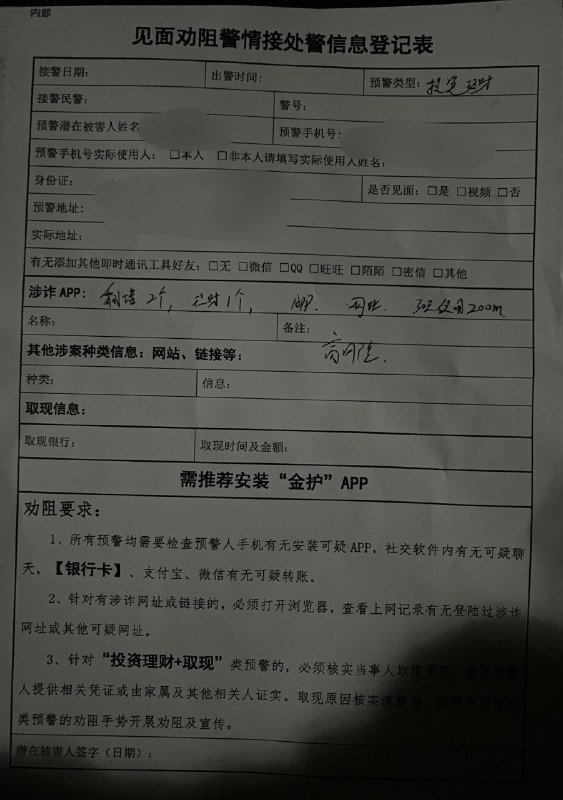 内部
见面劝阻警情接处警信息登记表
接警日期： 出警时间： 预警类型：投资理财
接警民警： 警号：
预警潜在被害人姓名 预警手机号：
预警手机号实际使用人：□本人 □非本人请填写实际使用人姓名：
身份证： 是否见面：□是 □视频 □否
预警地址：
实际地址：
有无添加其他即时通讯工具好友：□无 □微信 □QQ □旺旺 □陌陌 □密信 □其他
涉诈APP：翻墙2个， 1个， 网址 使用200m
名称： 备注：
其他涉案种类信息：网站、链接等： 高风险.
种类： 信息：
取现信息：
取现银行： 取现时间及金额：
需推荐安装“金护”APP
劝阻要求：
1、所有预警均需要检查预警人手机有无安装可疑APP，社交软件内有无可疑聊
天，【银行卡】、支付宝、微信有无可疑转账。
2、针对有涉诈网址或链接的，必须打开浏览器，查看上网记录有无登陆过涉诈
网址或其他可疑网址。
3、针对“投资理财+取现”类预警的，必须核实当事人取现原因，
人提供相关凭证或由家属及其他相关人证实。取现原因核实清楚后，
类预警的劝阻手势开展劝阻及宣传。
潜在被害人签字（日期）：